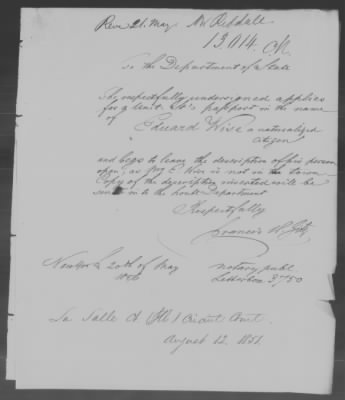 Recd 21. May
13,014.
To the Department of State
The respectfully undersigned applies
for a Unit. St's passport in the name
of
Eduard Wise a naturalized
citizen
and begs to leave the description of his person
open, as Mr E. Wise is not in the town
Copy of the description inserted will be
send in to the honb. Department
Respectfully
Francis
New York 20th of May
notary publ.
Letterbox 3750
La Salle Ct Circuit Court.
August 12. 1851.